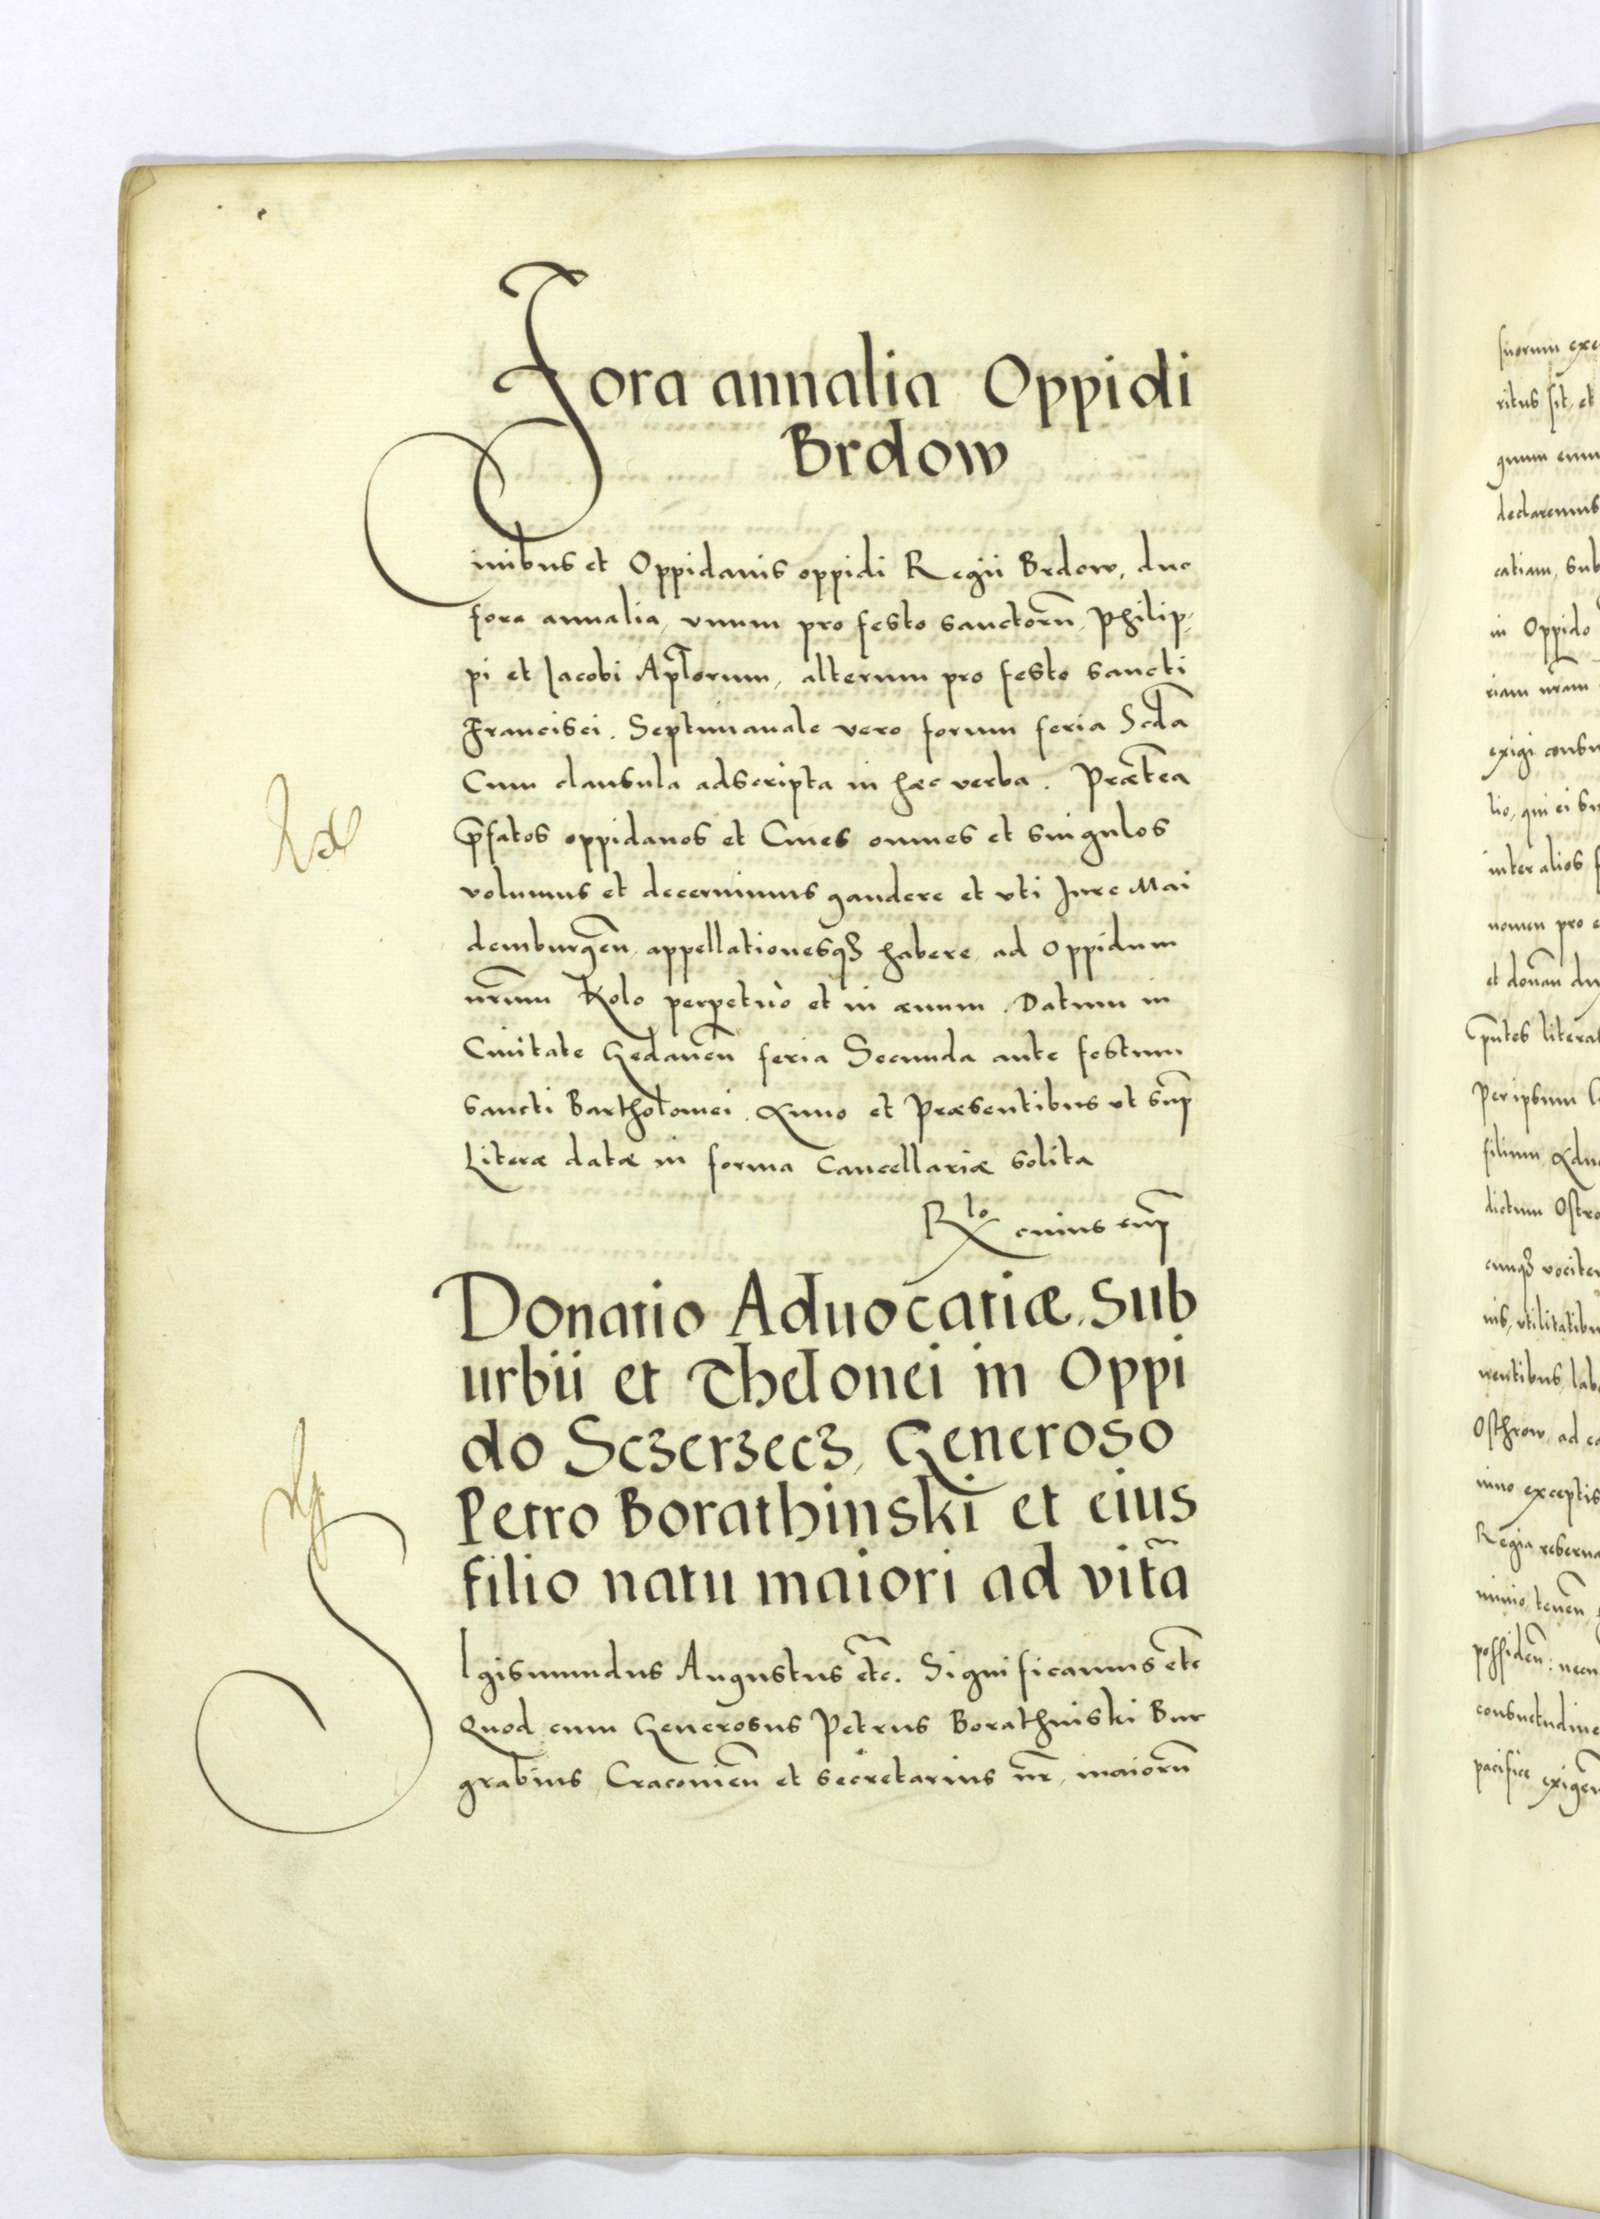 Fora annalia Oppidi
Brdow
Ciuibus et Oppidanis oppidi Regii Brdow, duo
fora annalia, vnum pro festo sanctorũ Philip,
pi et Jacobi Apl̃orum, alterum pro festo sancti
Francisci. Septimanale vero forum feria Scd̃a
Cum clausula adscripta in hæc verba. Præt̃ea
p̃fatos oppidanos et Ciues omnes et singulos
volumus et decernimus gaudere et vti Jure Mai
demburgeñ, appellationesqȝ habere ad Oppidum
nr̃um Kolo perpetuò et in æuum. Datum in
Ciuitate Gedaneñ feria Secunda ante festum
sancti Bartholomei. Anno et Præsentibus vt sup̃
Literæ datæ in forma Cancellariæ solita
Rlo cuius sup̃
Donatio Aduocatiæ, Sub
urbii et Thelonei in Oppi
do Sczerzecz, Generoso
Petro Borathinski et eius
filio natu maiori ad vitã
SIgismundus Augustus etc̃. Significamus etc̃
Quod cum Generosus Petrus Borathinski Bur
grabius Cracouieñ et secretarius nr̃, maiorũ
suorum
ritus sit, et
quum
declaremus
catiam, sub
in Oppido
riam nr̃am
exigi
lio, qui ei
inter alios
nomen pro
et
p̃ntes literas
Per ipsum
filium
dictum
cunqȝ
nis, vtilitatibus
uentibus,
Osthrow, ad
nino exceptis
Regia
minio, teneñ
possideñ:
consuetudine
pacifice exigeñ